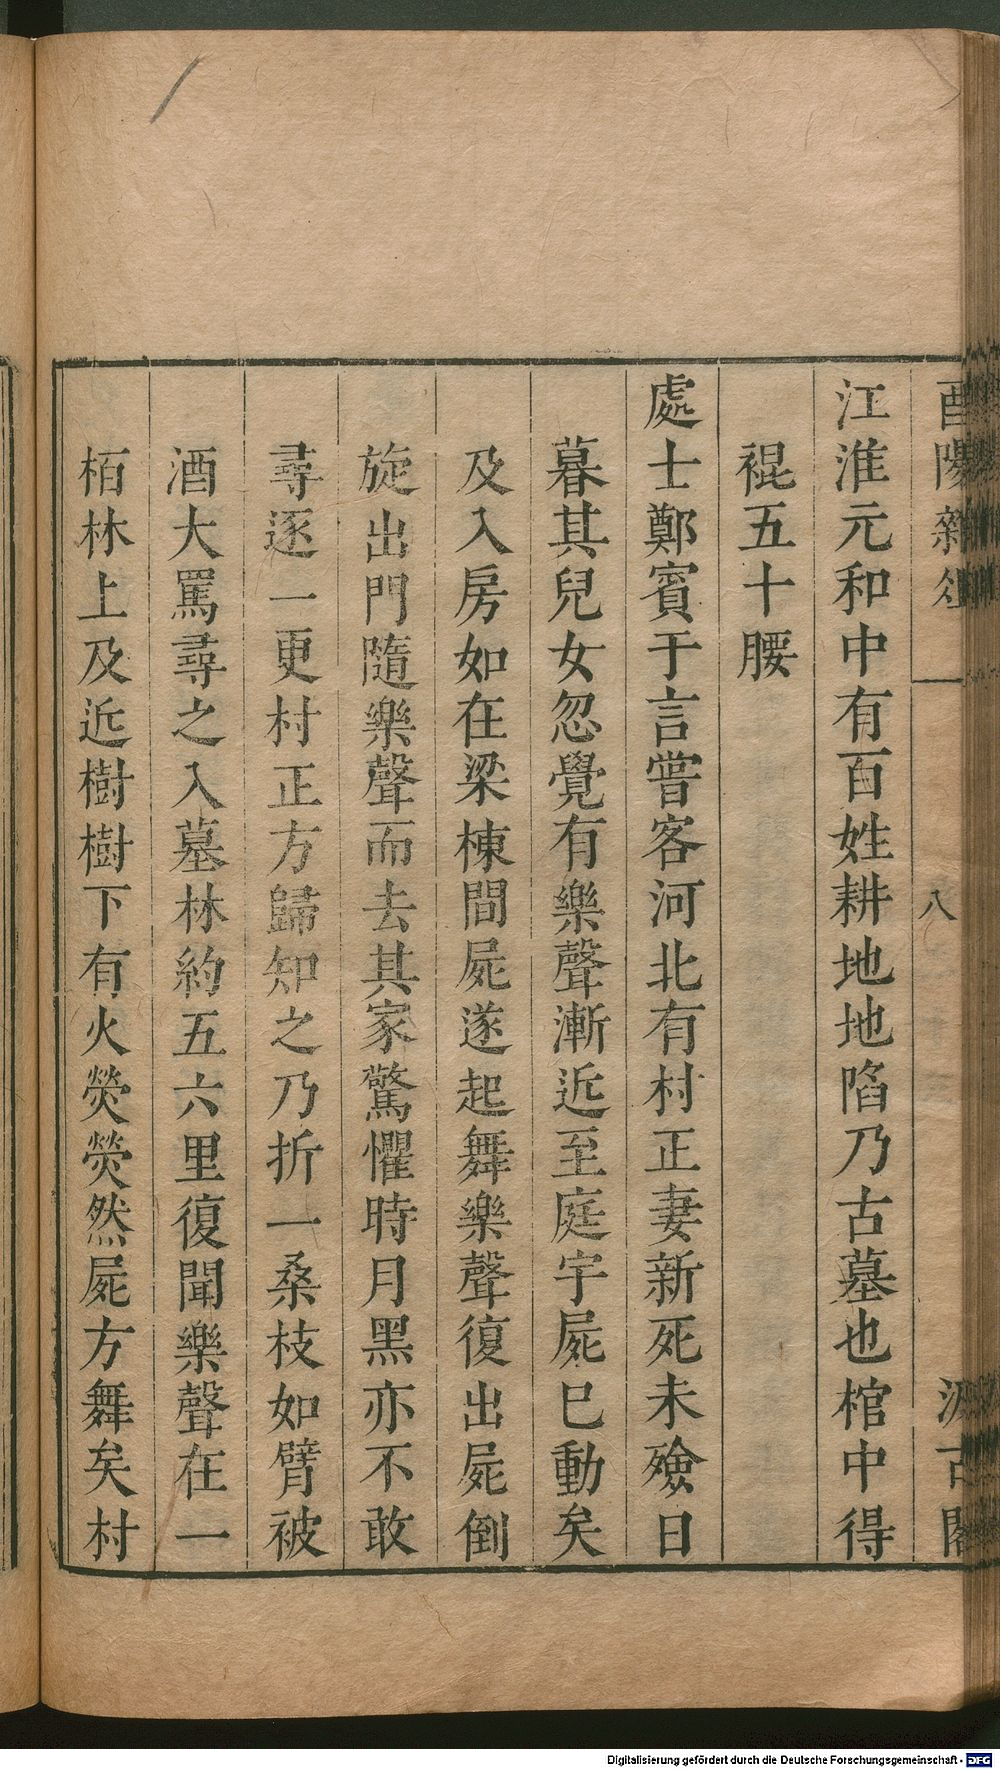 酉陽雜俎
八
汲古閣
江淮元和中有百姓耕地地陷乃古墓也棺中得
裩五十腰
處士鄭賓于言嘗客河北有村正妻新死未殮日
暮其兒女忽覺有樂聲漸近至庭宇屍巳動矣
及入房如在梁棟間屍遂起舞樂聲復出屍倒
旋出門隨樂聲而去其家驚懼時月黑亦不敢
尋逐一更村正方歸知之乃折一桑枝如臂被
酒大罵尋之入墓林約五六里復聞樂聲在一
栢林上及近樹樹下有火熒熒然屍方舞矣村
Digitalisierung gefördert durch die Deutsche Forschungsgemeinschaft - DFG